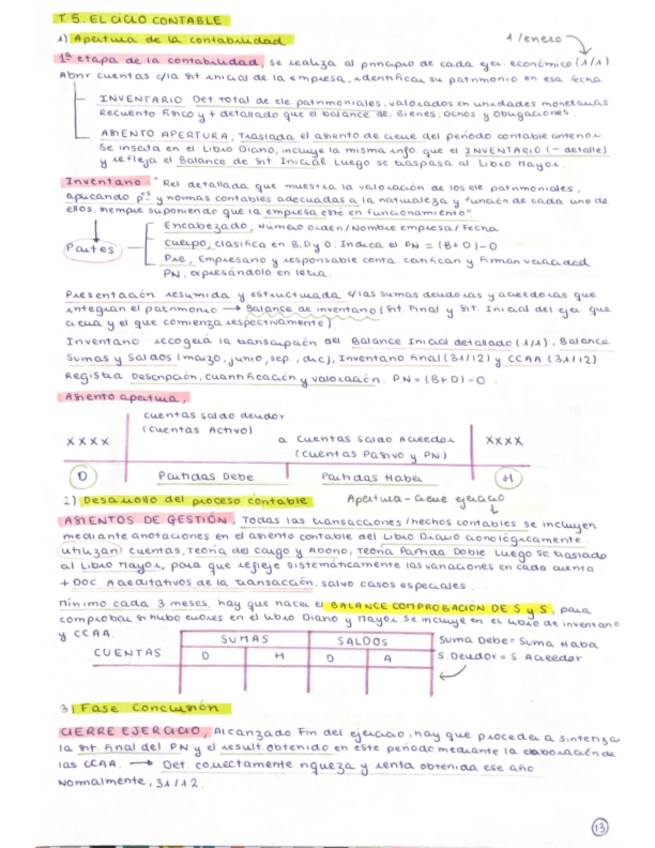 T 5. EL CICLO CONTABLE
1) Apertura de la contabilidad
1/enero
1ª etapa de la contabilidad, se realiza al principio de cada ejer. económico (1/1)
Abrir cuentas c/la sit inicial de la empresa, identificar su patrimonio en esa fecha
INVENTARIO Det. total de ele patrimoniales, valorados en unidades monetarias
Recuento físico y + detallado que el balance de Bienes, Dchos y Obligaciones.
ASIENTO APERTURA, Traslada el asiento de cierre del periodo contable anterior
Se inserta en el Libro Diario, incluye la misma info que el INVENTARIO (- detalle)
y refleja el Balance de Sit. Inicial Luego se traspasa al Libro Mayor.
Inventario "Rel detallada que muestra la valoración de los ele patrimoniales,
aplicando pºs y normas contables adecuadas a la naturaleza y función de cada uno de
ellos, siempre suponiendo que la empresa esté en funcionamiento"
Partes
Encabezado, Número orden/Nombre empresa/Fecha
Cuerpo, clasifica en B, D y O. Indica el PN = (B+D)-O
Pie, Empresario y responsable conta. certifican y firman veracidad
PN, expresándolo en letra.
Presentación resumida y estructurada c/las sumas deudoras y acreedoras que
integran el patrimonio → Balance de inventario (Sit Final y Sit. Inicial del ejer que
cierra y el que comienza respectivamente)
Inventario recogerá la transcripción del Balance Inicial detallado (1/1), Balance
Sumas y Saldos (marzo, junio, sep, dic), Inventario final (31/12) y CCAA (31/12)
Registra Descripción, cuantificación y valoración. PN = (B+D)-O.
Asiento apertura,
cuentas saldo deudor
(Cuentas Activo)
XXXX a Cuentas Saldo Acreedor XXXX
(Cuentas Pasivo y PN)
D Partidas Debe Partidas Haber H
2) Desarrollo del proceso contable Apertura - Cierre ejercicio
ASIENTOS DE GESTIÓN, Todas las transacciones/hechos contables se incluyen
mediante anotaciones en el asiento contable del Libro Diario cronológicamente.
Utilizan cuentas, Teoría del Cargo y Abono, Teoría Partida Doble Luego se traslada
al Libro Mayor, para que refleje sistemáticamente las variaciones en cada cuenta
+ DOC Acreditativos de la transacción, salvo casos especiales.
Mínimo cada 3 meses, hay que hacer el BALANCE COMPROBACIÓN DE S y S, para
comprobar si hubo errores en el Libro Diario y Mayor Se incluye en el Libro de inventario
y CCAA.
SUMAS SALDOS Suma Debe = Suma Haba
CUENTAS D H D A S. Deudor = S Acreedor
3) Fase Conclusión
CIERRE EJERCICIO, Alcanzado Fin del ejercicio, hay que proceder a sintetiza
la sit. Final del PN y el result. obtenido en este periodo mediante la elaboración de
las CCAA. → Det. correctamente riqueza y renta obtenida ese año
Normalmente, 31/12.
13